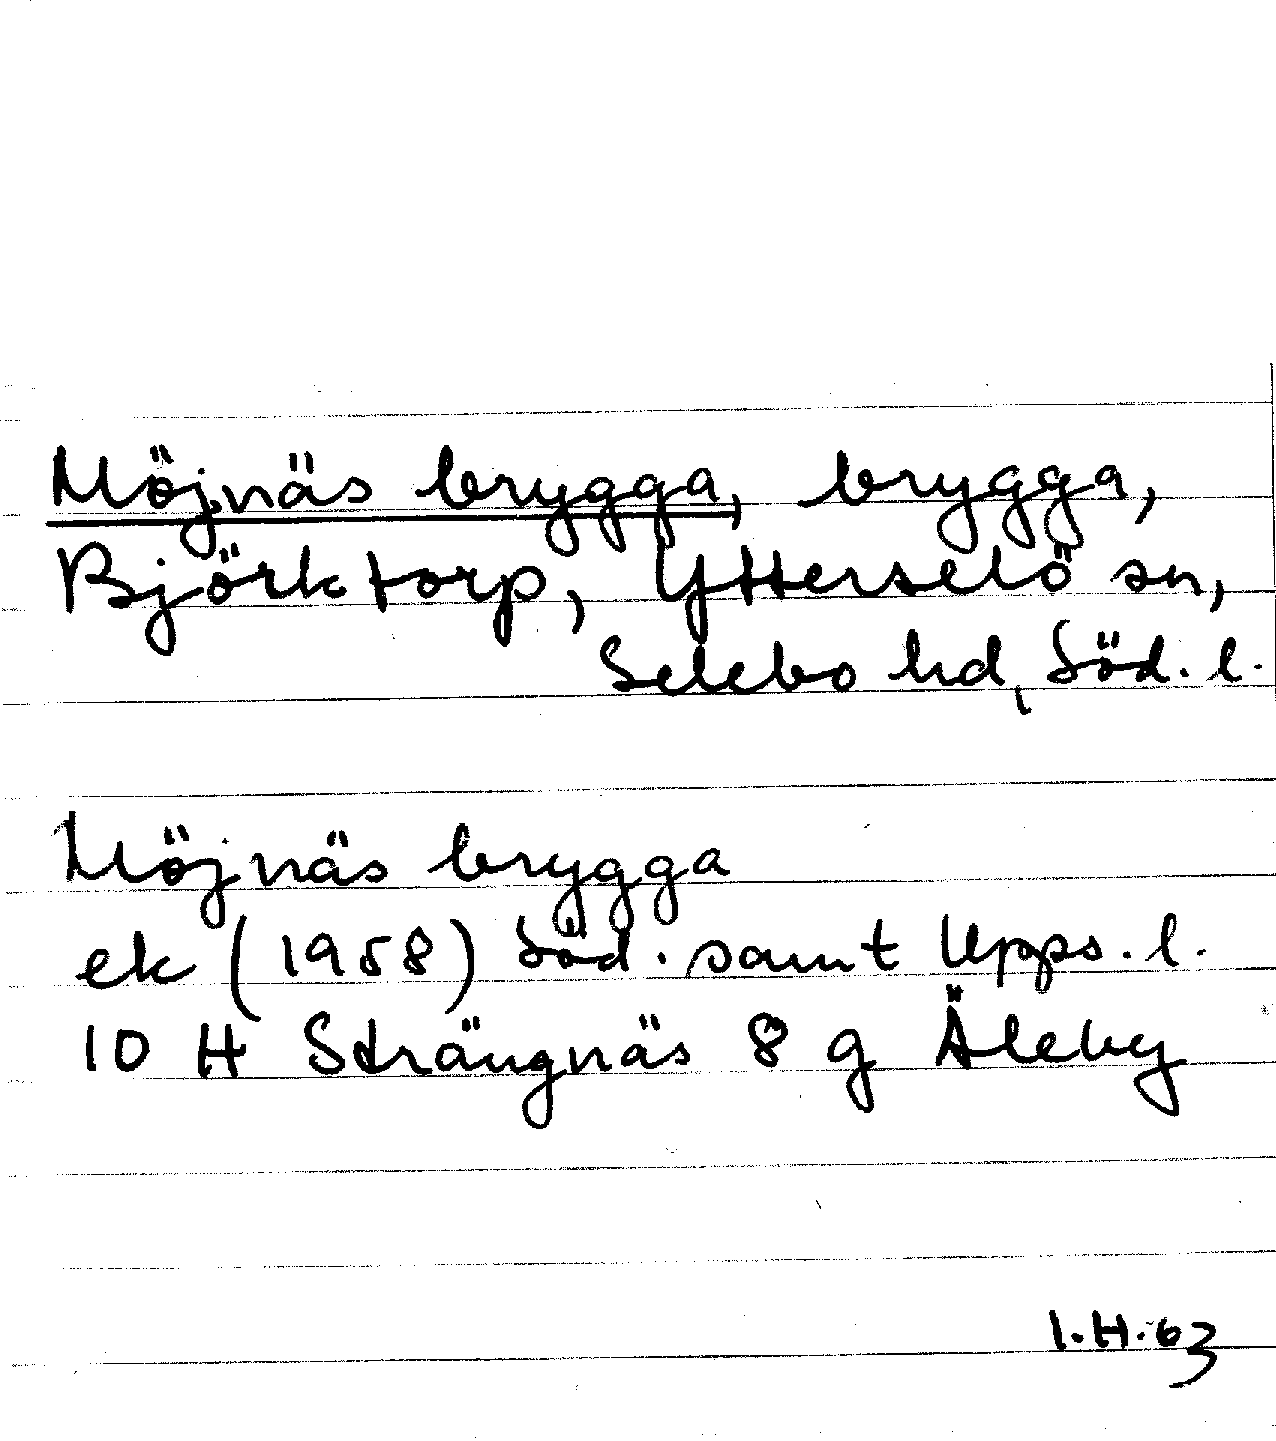 Möjnäs brygga, brygga,
Björktorp, Ytterselö sn,
Selebo hd, Söd. l.
Möjnäs brygga
ek (1958) Söd. samt Upps. l.
10 H Strängnäs 8 g Äleby
I.H.63